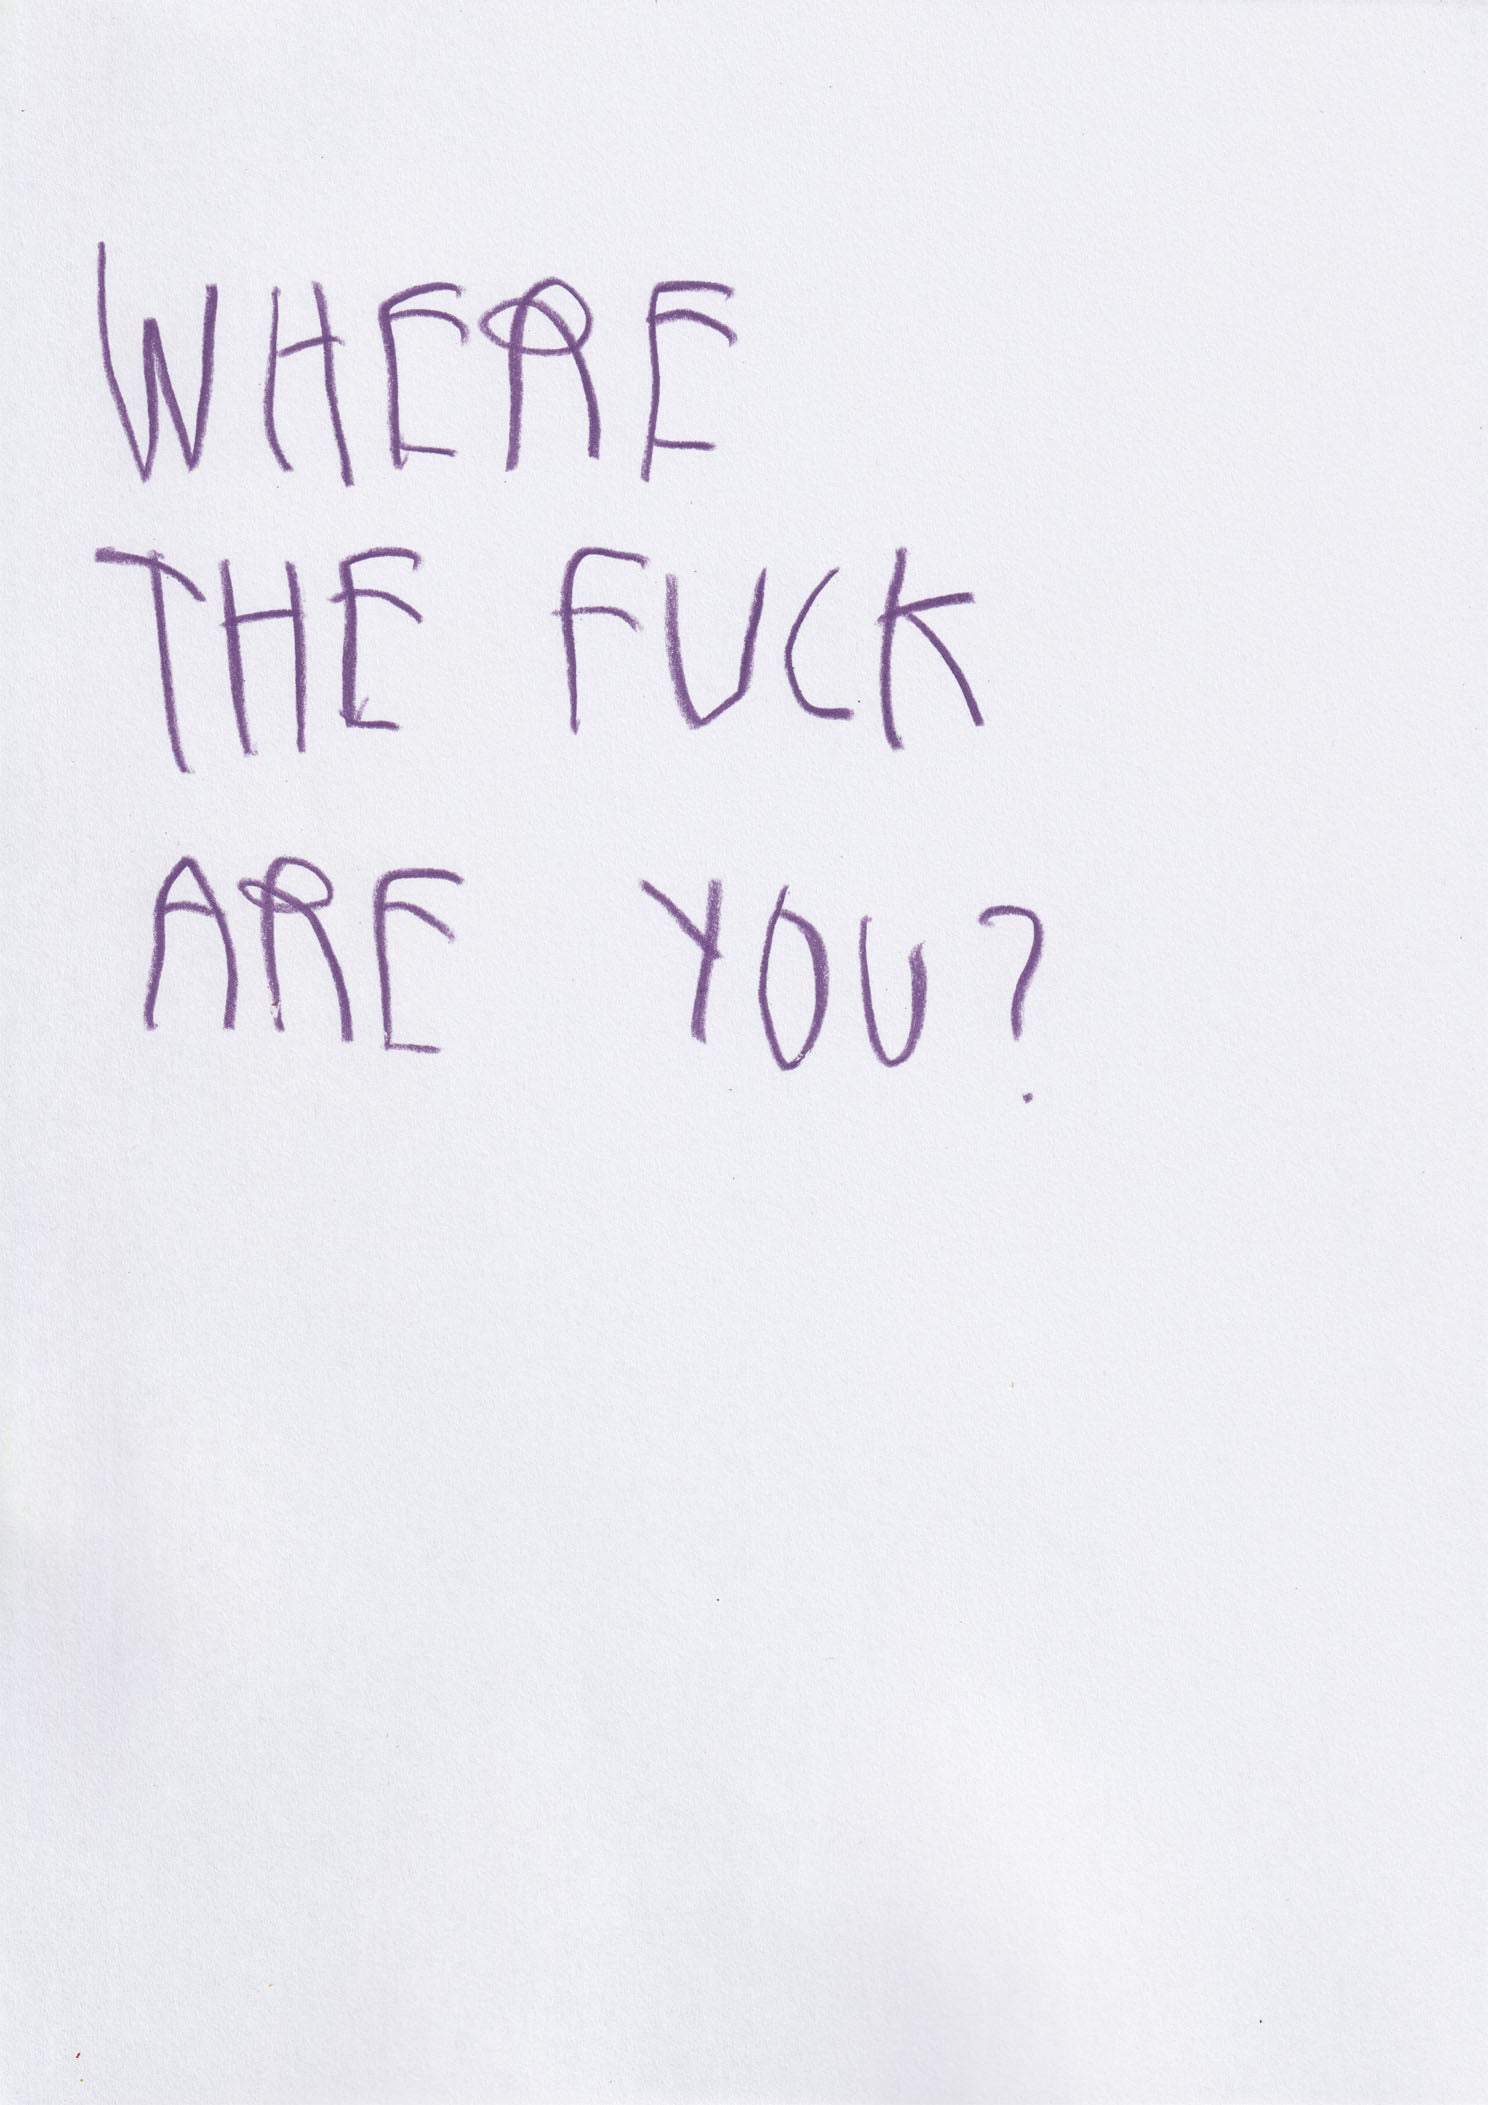 WHERE
THE FUCK
ARE YOU?